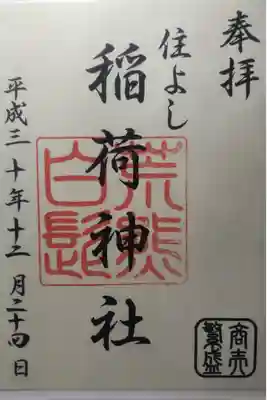 奉拝
住よし
稲荷神社
荒熊
白髭
平成三十年十二月二十四日
商売
繁盛